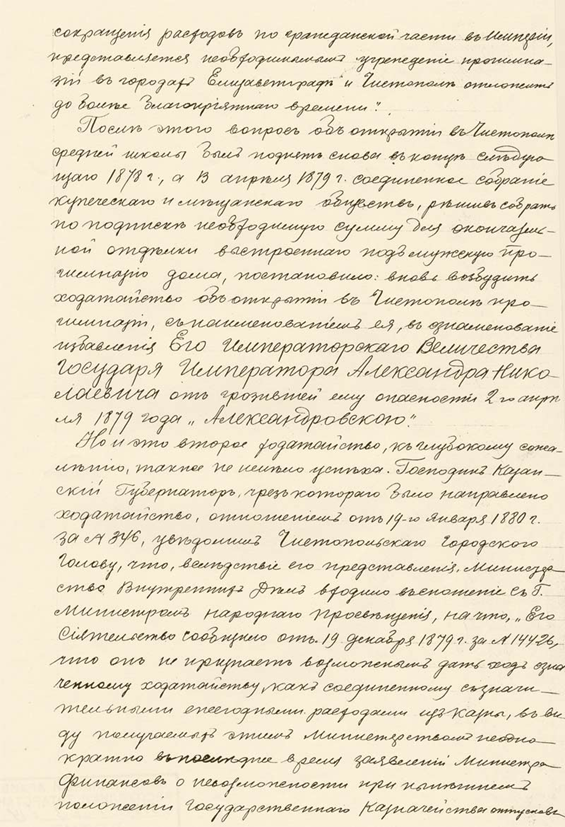 сокращенія расходовъ по гражданской части въ Имперіи,
представляется необходимымъ учрежденіе прогимна-
зій въ городахъ Елисаветградѣ и Чистополѣ отложить
до болѣе благопріятнаго времени".
Послѣ этого вопросъ объ открытіи въ Чистополѣ
средней школы былъ поднятъ снова въ концѣ слѣдую-
щаго 1878 г., а 13 апрѣля 1879 г. соединенное собраніе
купеческаго и мѣщанскаго обществъ, рѣшивъ собрать
по подпискѣ необходимую сумму для окончатель-
ной отдѣлки выстроеннаго подъ мужскую про-
гимназію дома, постановило: вновь возбудить
ходатайство объ открытіи въ Чистополѣ про-
гимназіи, съ наименованіемъ ея, въ ознаменованіе
избавленія Его Императорскаго Величества
Государя Императора Александра Нико-
лаевича отъ грозившей ему опасности 2-го апрѣ-
ля 1879 года „Александровскою".
Но и это второе ходатайство, къ глубокому сожа-
лѣнію, также не имѣло успѣха. Господинъ Казан-
скій Губернаторъ, чрезъ котораго было направлено
ходатайство, отношеніемъ отъ 19-го Января 1880 г.
за № 346, увѣдомилъ Чистопольскаго Городского
Голову, что, вслѣдствіе его представленія, Министер-
ство Внутреннихъ Дѣлъ входило въ сношеніе съ Г.
Министромъ народнаго Просвѣщенія, на что, „Его
Сіятельство сообщилъ отъ 19 декабря 1879 г. за № 14426,
что онъ не признаетъ возможнымъ дать ходъ озна-
ченному ходатайству, какъ соединенному съ значи-
тельными ежегодными расходами изъ казны, въ ви-
ду получаемыхъ этимъ Министерствомъ неодно-
кратно въ послѣднее время заявленій Министра
Финансовъ о невозможности при нынѣшнемъ
положеніи Государственнаго Казначейства отпусковъ